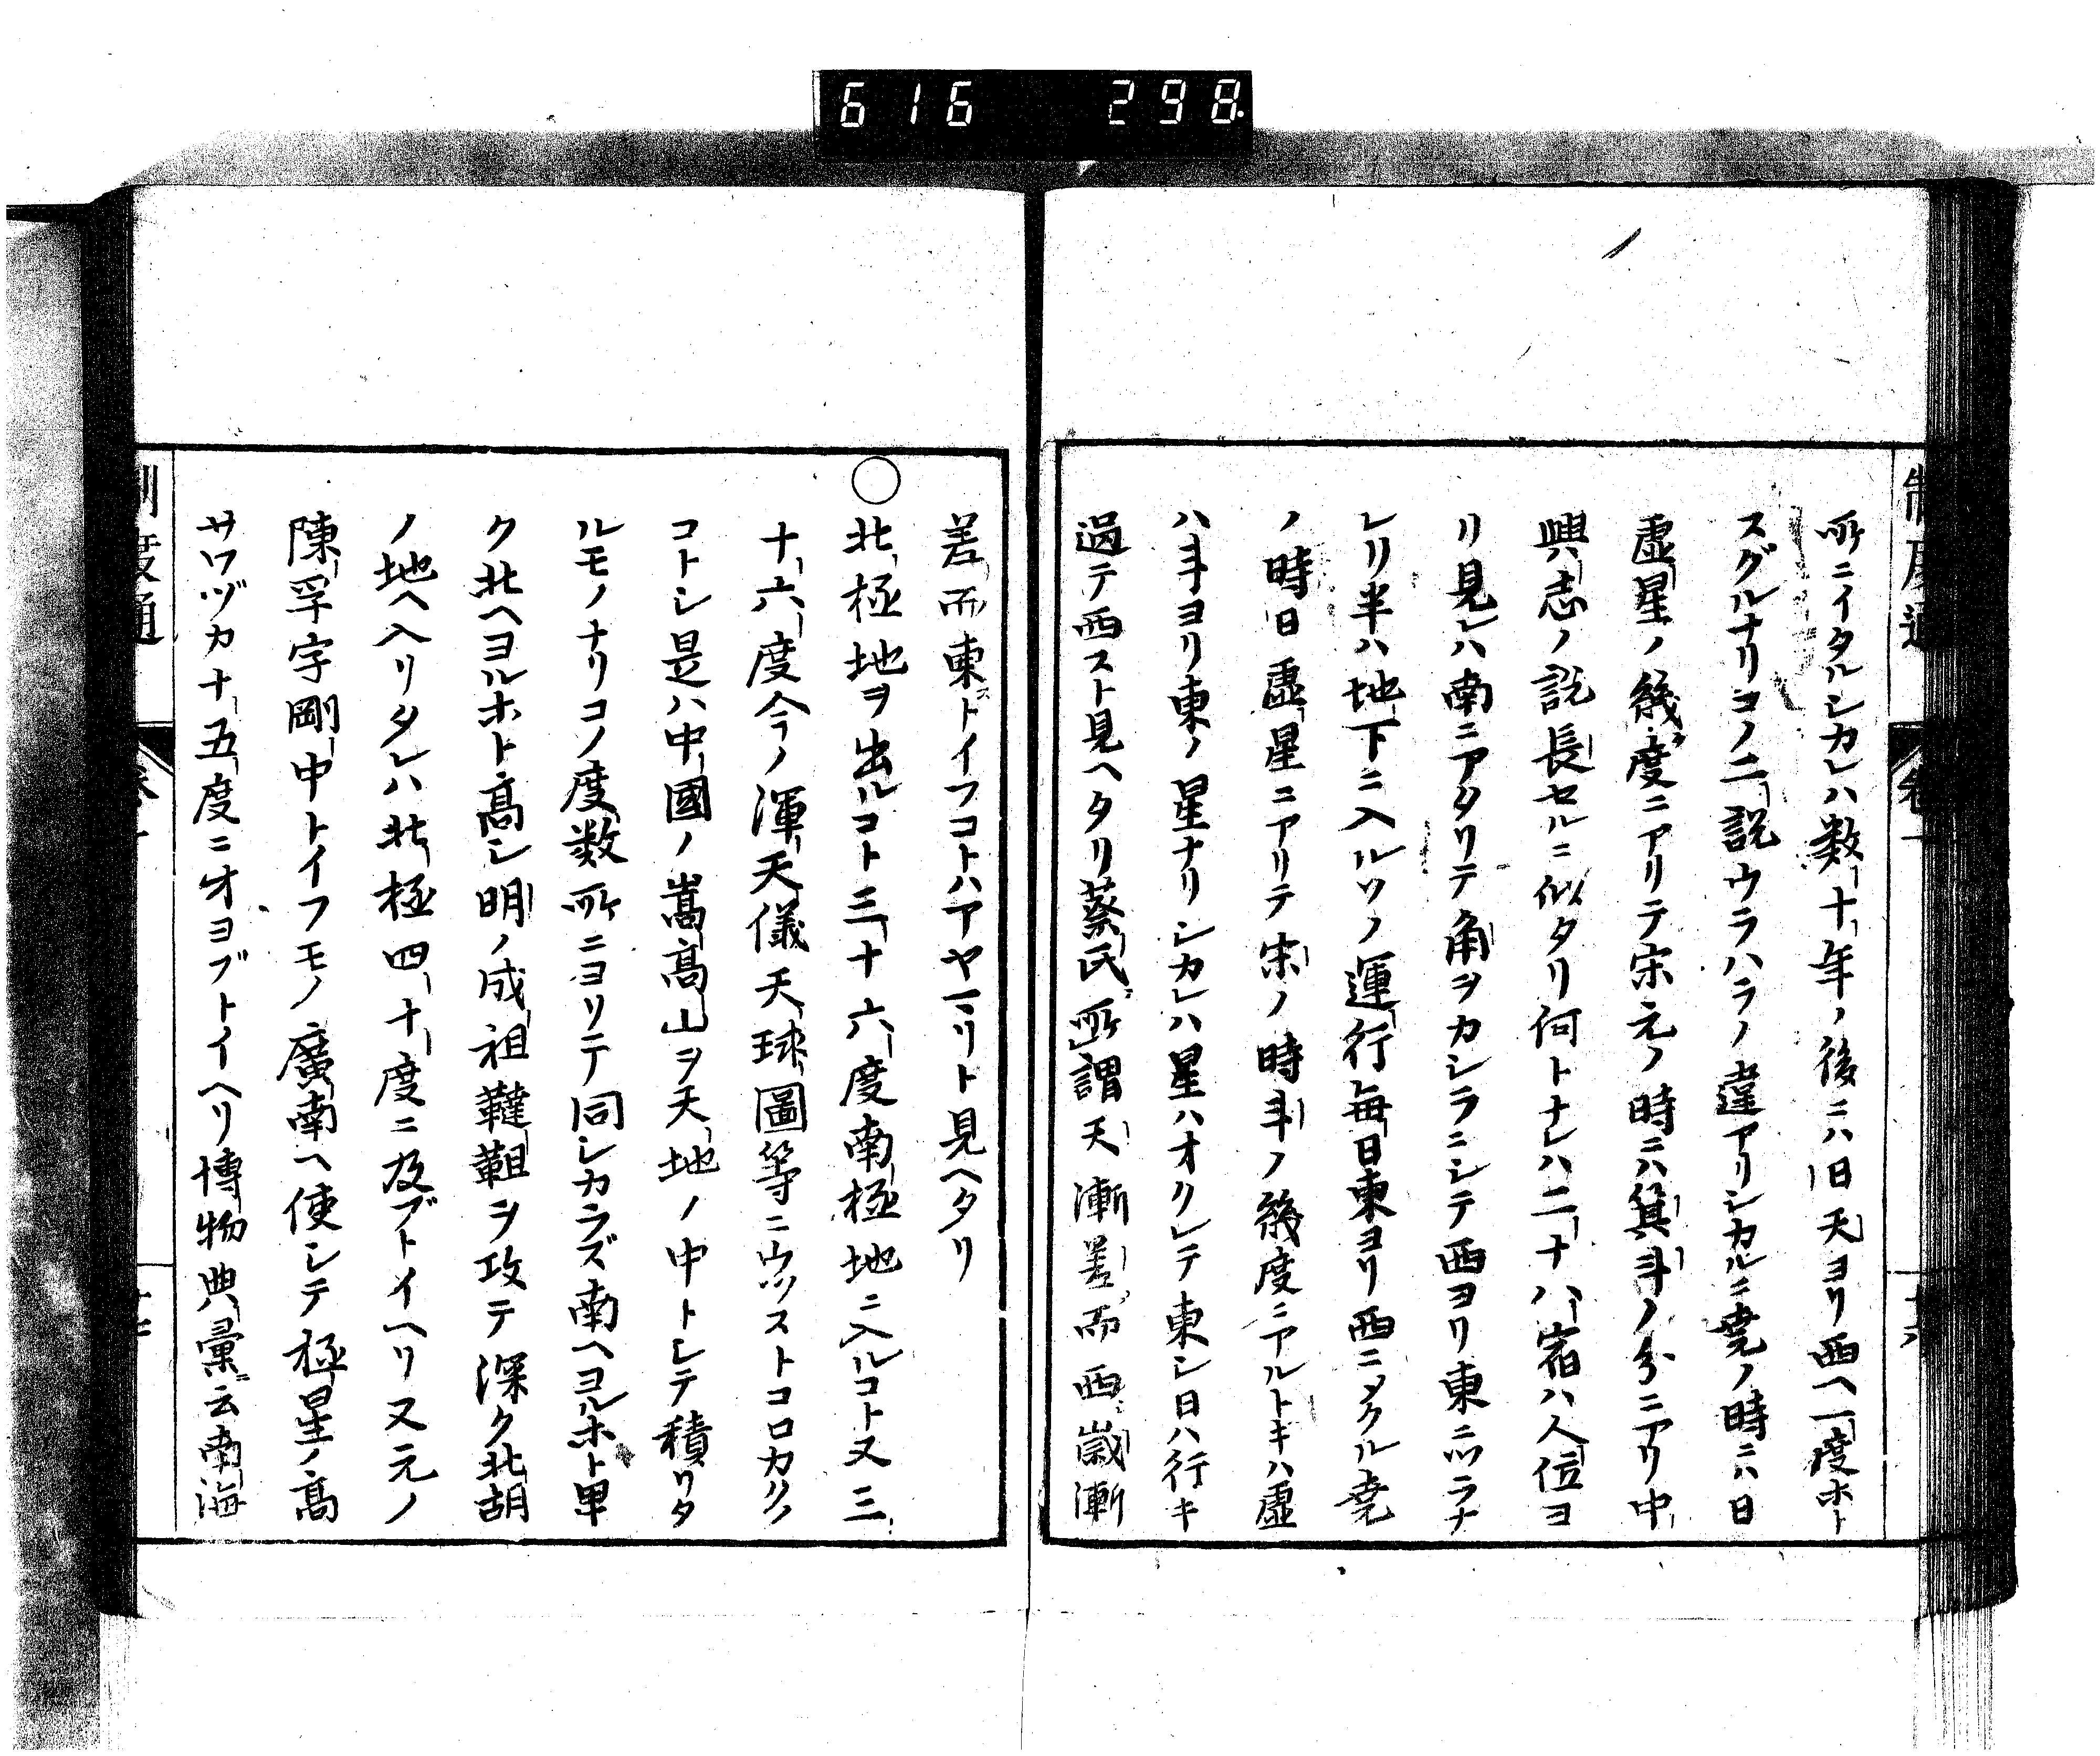 616 298
制度通 卷一 十六
所ニイタルシカレハ数十年ノ後ニハ旧天ヨリ西ヘ一度ホト
スグルナリコノ二説ウラハラノ違アリシカルニ堯ノ時ニハ日
虚星ノ幾度ニアリテ宋元ノ時ニハ箕斗ノ分ニアリ中
興志ノ説長セルニ似タリ何トナレハ二十八宿ハ人位ヨ
リ見レハ南ニアタリテ角ヲカシラニシテ西ヨリ東ニツラナ
レリ半ハ地下ニ入ルソノ運行毎日東ヨリ西ニメクル堯
ノ時日虚星ニアリテ宋ノ時斗ノ幾度ニアルトキハ虚
ハ斗ヨリ東ノ星ナリシカレハ星ハオクレテ東シ日ハ行キ
過テ西スト見ヘタリ蔡氏所謂天漸差而西歳漸
差而東ストイフコトハアヤマリト見ヘタリ
○北極地ヲ出ルコト三十六度南極地ニ入ルコト又三
十六度今ノ渾天儀天球圖等ニウツストコロカクノ
コトシ是ハ中國ノ嵩高山ヲ天地ノ中トシテ積リタ
ルモノナリコノ度数所ニヨリテ同シカラズ南ヘヨルホト卑
ク北ヘヨルホト高シ明ノ成祖韃靼ヲ攻テ深ク北胡
ノ地ヘ入リタレハ北極四十度ニ及ブトイヘリ又元ノ
陳孚字剛中トイフモノ廣南ヘ使シテ極星ノ高
サワヅカ十五度ニオヨブトイヘリ博物典彙云南海
制度通 卷一 十七